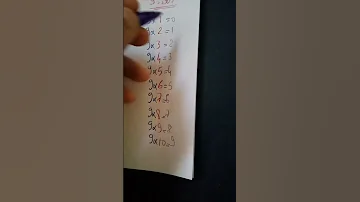 9x1=0
9x2=1
9x3=2
9x4=3
9x5=4
9x6=5
9x7=6
9x8=7
9x9=8
9x10=9